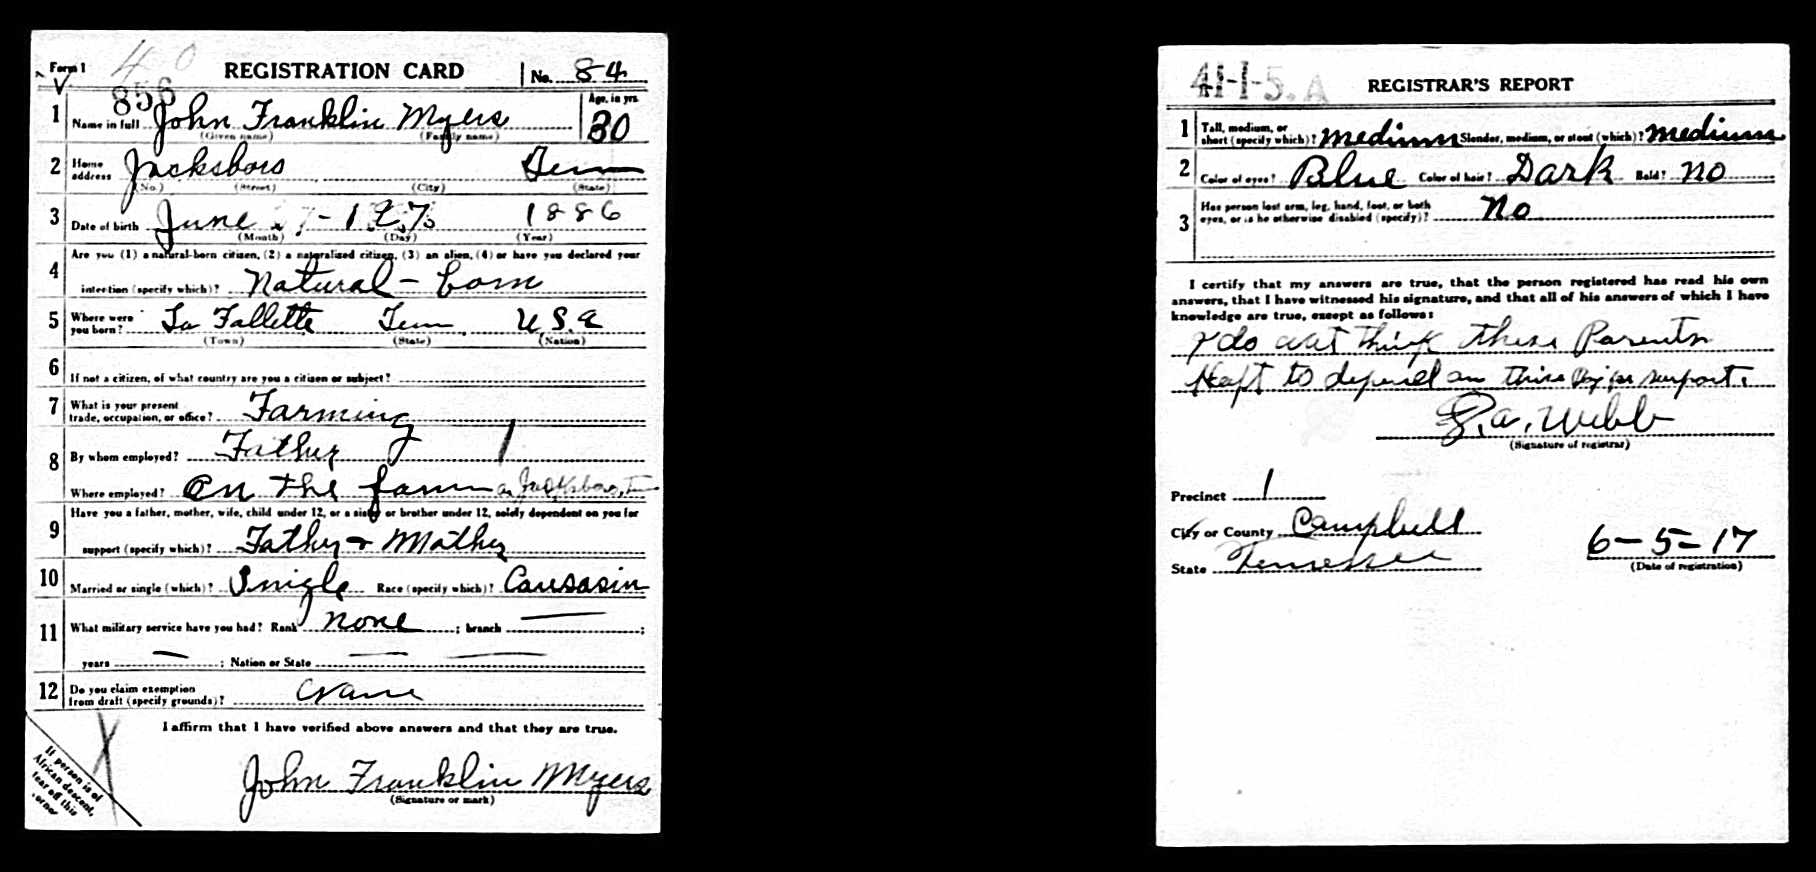 Form 1
REGISTRATION CARD
No. 84
856
1 Name in full John Franklin Myers
(Given name) (Family name)
Age, in yrs. 30
2 Home address Jacksboro Tenn
(No.) (Street) (City) (State)
3 Date of birth June 27 1886
(Month) (Day) (Year)
4 Are you (1) a natural-born citizen, (2) a naturalized citizen, (3) an alien, (4) or have you declared your
intention (specify which)? Natural-born
5 Where were you born? La Fallette Tenn U.S.a
(Town) (State) (Nation)
6 If not a citizen, of what country are you a citizen or subject?
7 What is your present trade, occupation, or office? Farming
8 By whom employed? Father
Where employed? On the farm Jacksboro, T
9 Have you a father, mother, wife, child under 12, or a sister or brother under 12, solely dependent on you for
support (specify which)? Father + Mother
10 Married or single (which)? Single Race (specify which)? Caucasin
11 What military service have you had? Rank none ; branch — ;
years — ; Nation or State —
12 Do you claim exemption from draft (specify grounds)?
I affirm that I have verified above answers and that they are true.
John Franklin Myers
(Signature or mark)
If person is of
African descent,
tear off this
corner
41-1-5. A
REGISTRAR'S REPORT
1 Tall, medium, or short (specify which)? medium Slender, medium, or stout (which)? medium
2 Color of eyes? Blue Color of hair? Dark Bald? no
3 Has person lost arm, leg, hand, foot, or both
eyes, or is he otherwise disabled (specify)? No
I certify that my answers are true, that the person registered has read his own
answers, that I have witnessed his signature, and that all of his answers of which I have
knowledge are true, except as follows:
I do not think these Parents
to depend on this support.
Webb
(Signature of registrar)
Precinct 1
City or County Campbell
State Tennessee
6-5-17
(Date of registration)